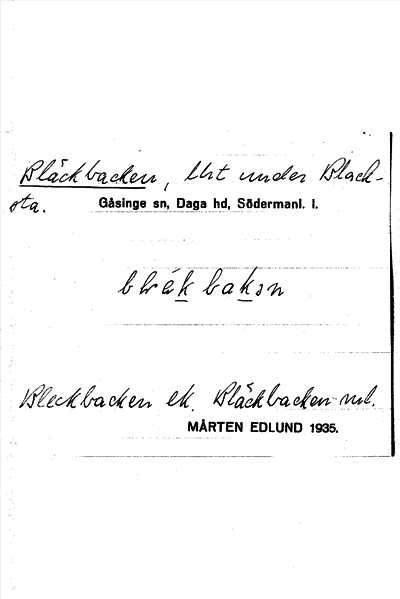 Bläckbacken, lht under Black-
sta. Gåsinge sn, Daga hd, Södermanl. l.
Bleckbacken ek. Bläckbacken
MÅRTEN EDLUND 1935.